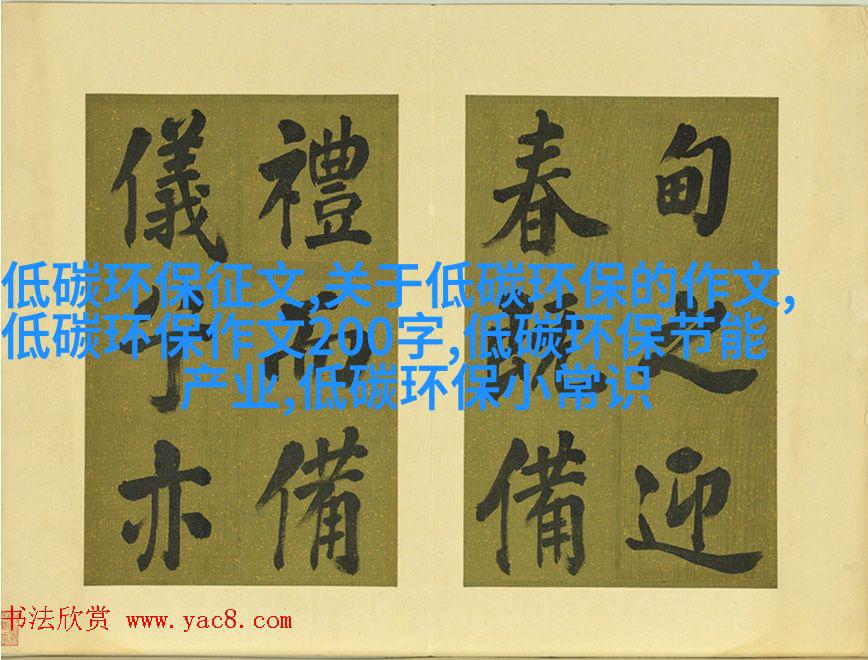 甸之迎
春備
禮備
儀亦
低碳环保征文,关于低碳环保的作文,
低碳环保作文200字,低碳环保节能
产业,低碳环保小常识
书法欣赏 www.yac8.com